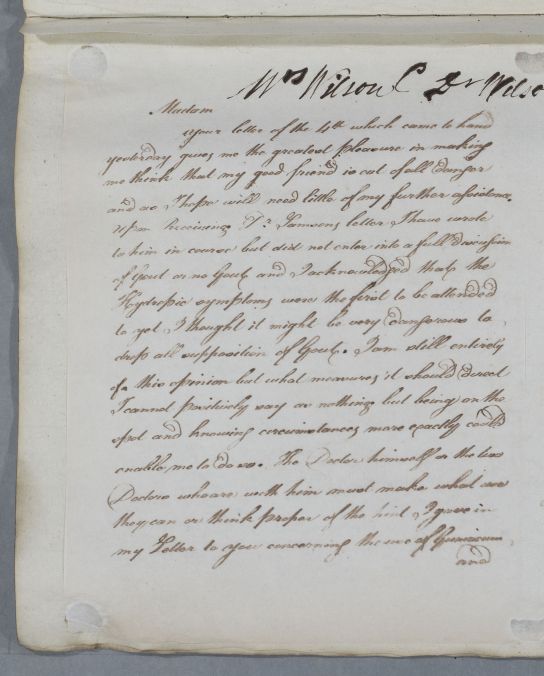 Mrs Wilson C Dr Wilso
Madam
Your letter of the 4th which came to hand
yesterday gives me the greatest pleasure in making
me think that my good friend is out of all danger
and as I hope will need little of my further assistance.
Upon Receiving Dr letter I have wrote
to him in course but did not enter into a full discussion
of Gout or no Gout and I acknowledged that the
Hydropic symptoms were the first to be attended
to yet I thought it might be very dangerous to
drop all supposition of Gout. I am still entirely
of this opinion but what measures it should direct
I cannot positively say as nothing but being on the
spot and knowing circumstances more exactly could
enable me to do so. The Doctor himself or the two
Doctors who are with him must make what use
they can or think proper of the hint I gave in
my Letter to you concerning the use of Guaiacum
and